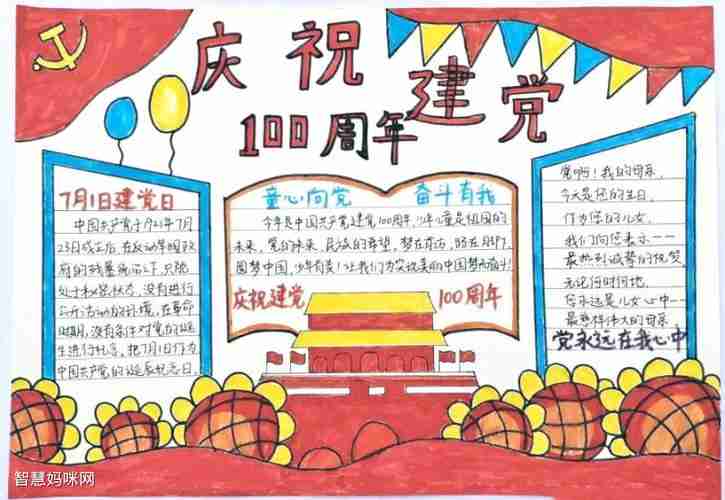 庆祝建党
100周年
7月1日建党日
中国共产党于1921年7月
23日成立后,在反动军阀政
府的残暴统治下,只能
处于秘密状态,没有进行
公开活动的环境,在革命
战争时期,没有条件对党的诞
生进行纪念,把7月1日作为
中国共产党的诞辰纪念日。
童心向党 奋斗有我
今年是中国共产党建党100周年,少年儿童是祖国的
未来,党的未来,民族的希望,梦在前方,路在脚下,
圆梦中国,少年有责!让我们为实现美丽中国梦而奋斗!
庆祝建党 100周年
党啊!我的母亲,
今天是您的生日,
作为您的儿女,
我们向您表示--
最热烈诚挚的祝贺
无论何时何地,
您永远是儿女心中--
最慈祥伟大的母亲.
党永远在我心中
智慧妈咪网